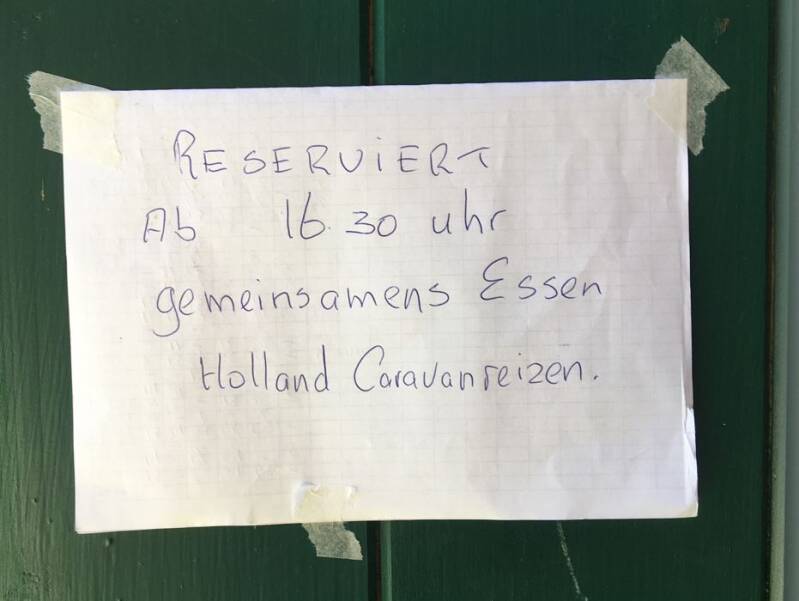 RESERVIERT
Ab 16.30 uhr
gemeinsamens Essen
Holland Caravanreizen.